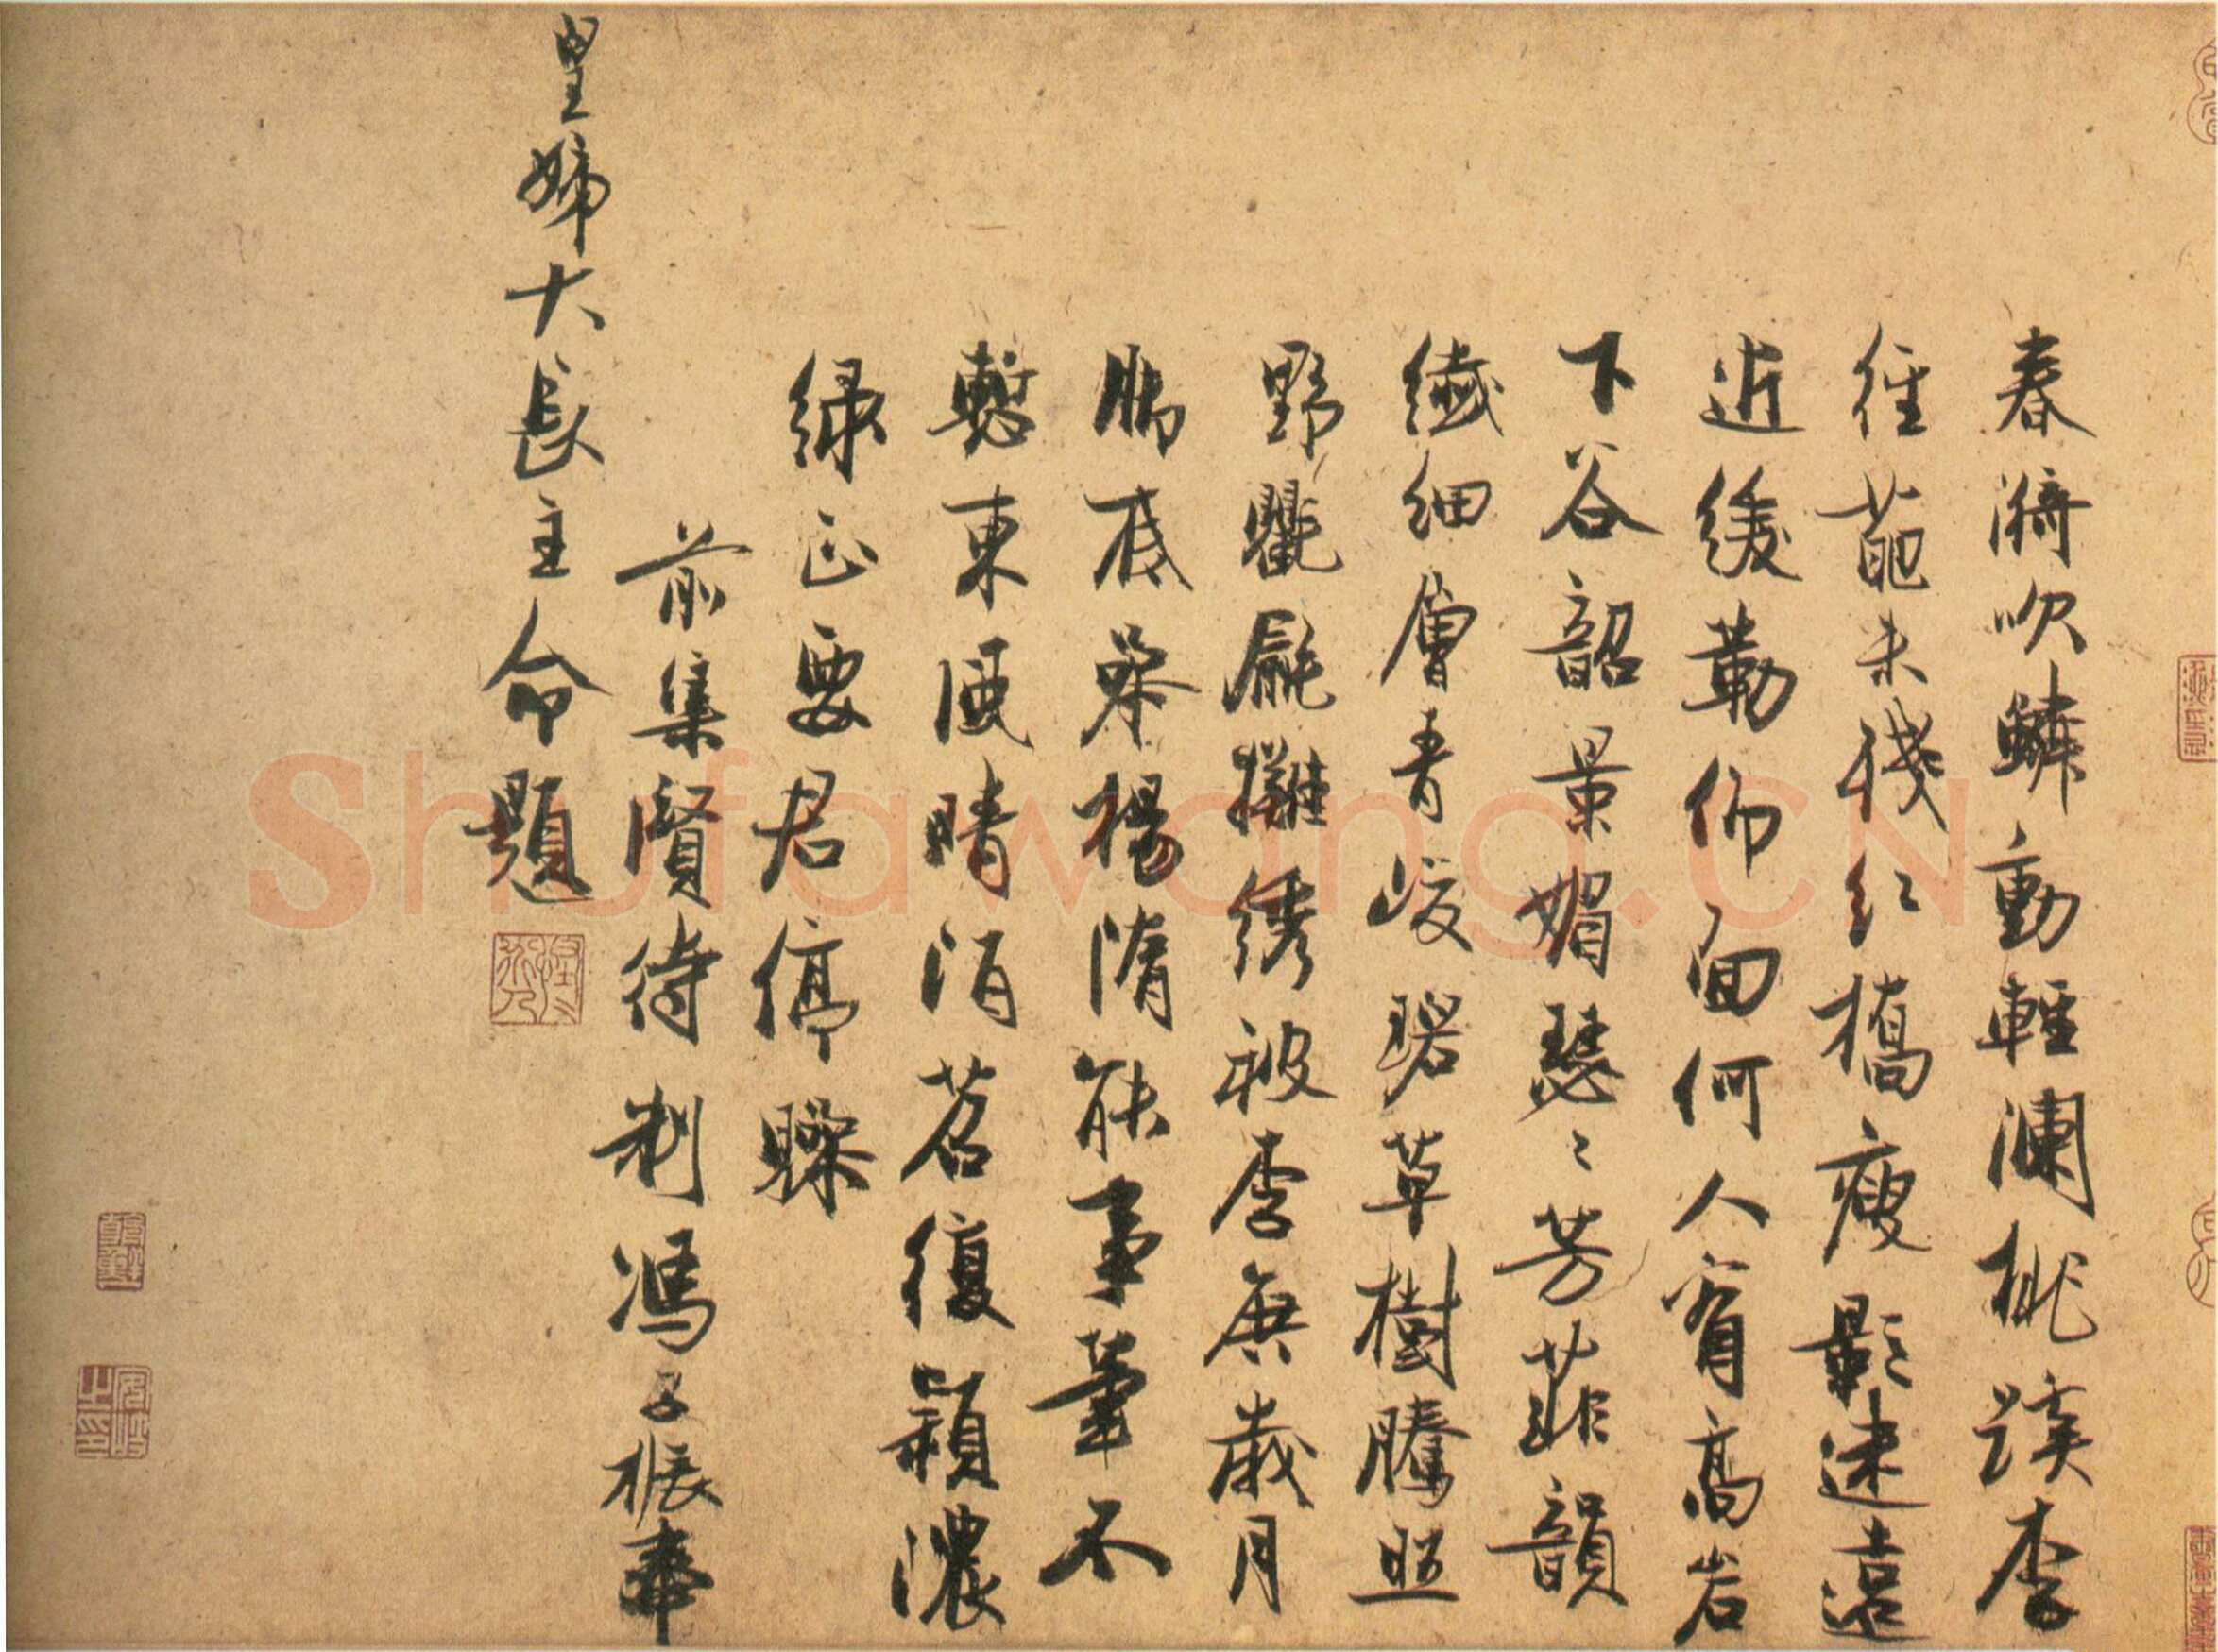 春漪吹鱗動輕瀾桃蹊李
徑葩未殘紅橋瘦影迷遠
近緩勒仰面何人看高岩
下谷韶景媚瑟〻芳菲韻
纖細層青峻碧草樹騰照
野氍毹攤綉被李唐歲月
脚底參楊隋能事筆不
慙東風晴陌苕復穎濃
綠正要君停驂
前集賢待制馮子振奉
皇姊大長主命題
Shufawang.CN